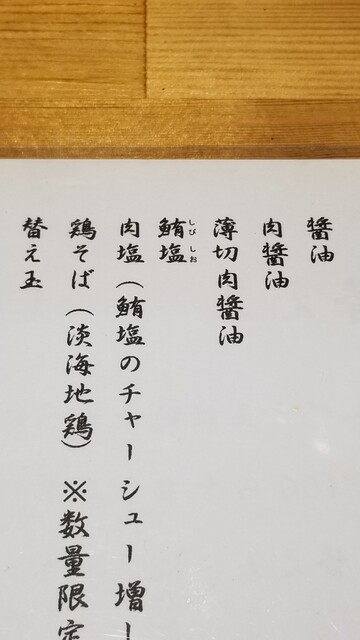 醤油
肉醤油
薄切肉醤油
鮪塩
しび しお
肉塩(鮪塩のチャーシュー増し
鶏そば(淡海地鶏) ※数量限定
替え玉